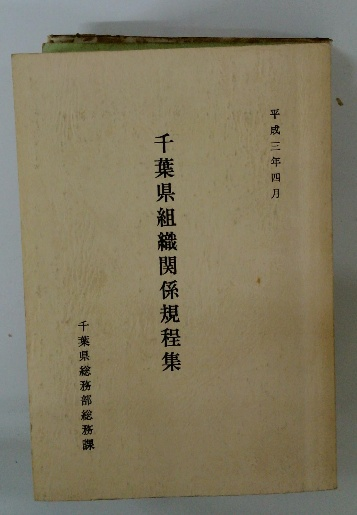 平成三年四月
千葉県組織関係規程集
千葉県総務部総務課